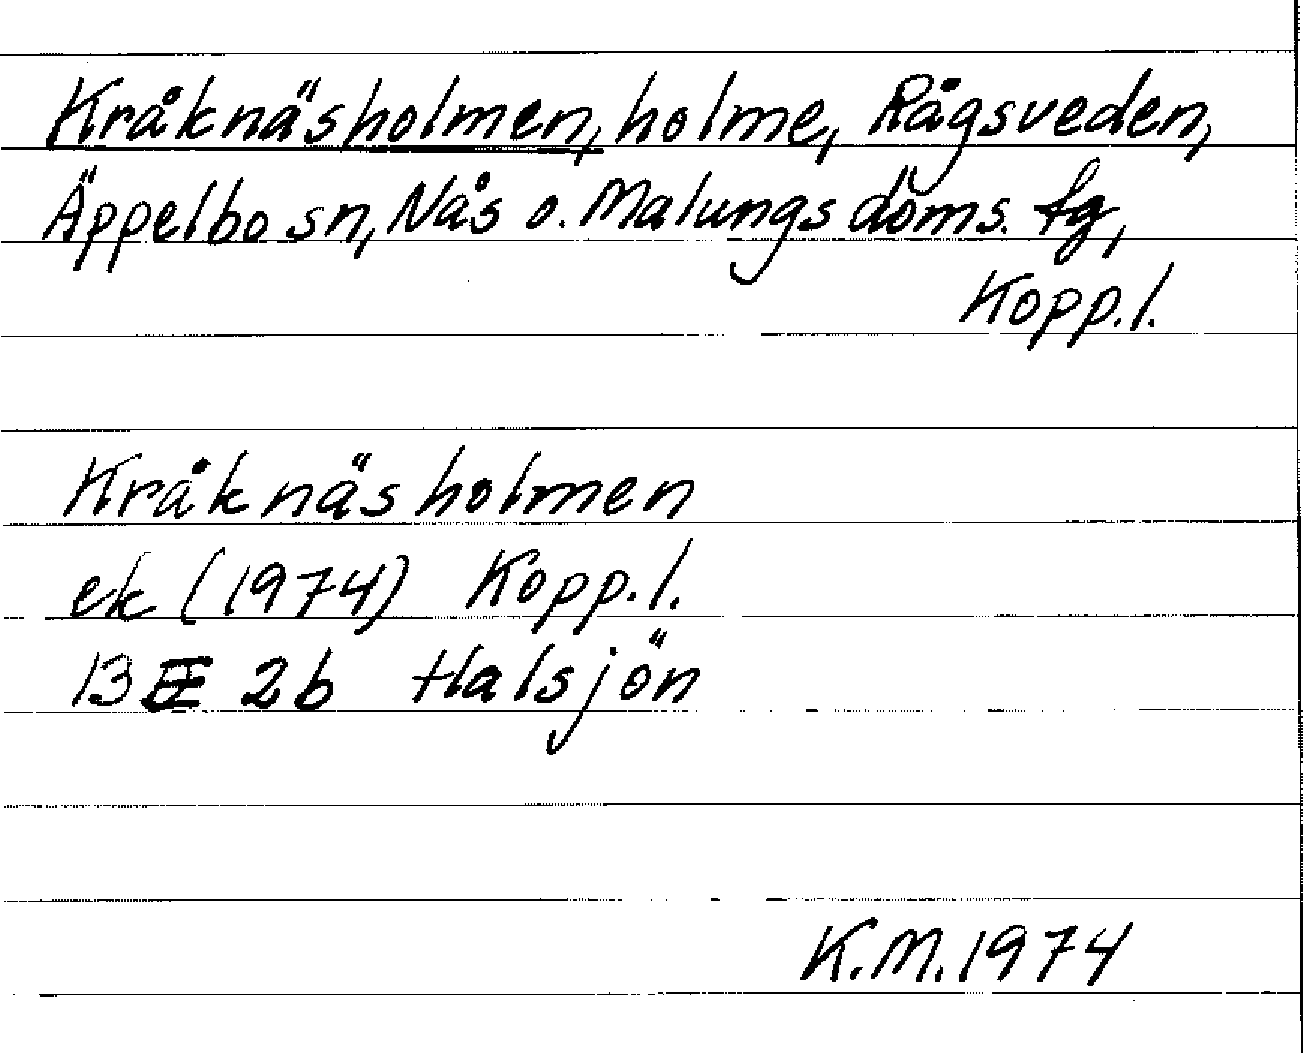 Kråknäsholmen, holme, Rågsveden,
Äppelbo sn, Nås o. Malungs doms. fg,
Kopp.l.
Kråknäsholmen
ek (1974) Kopp.l.
13 E 2b Halsjön
K.M. 1974